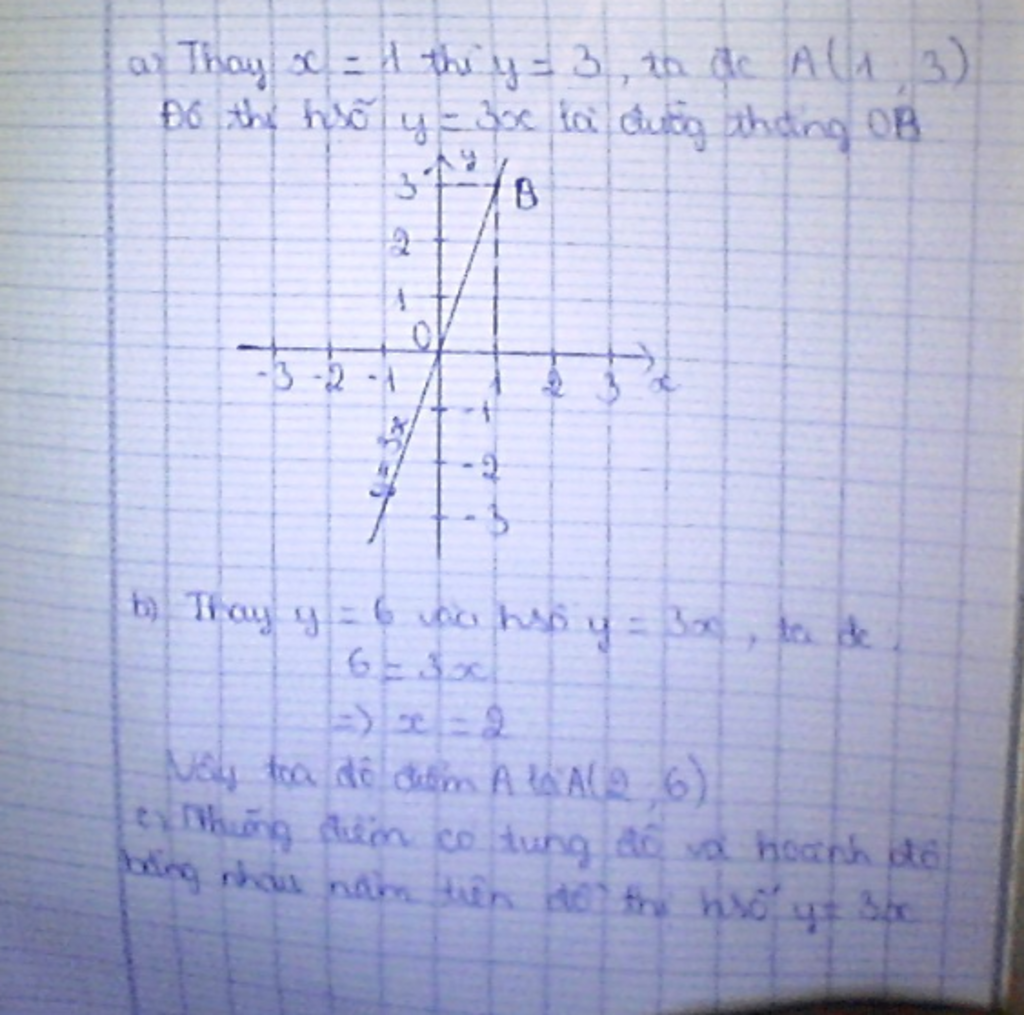 a) Thay x = 1 thì y = 3, ta đc A(1; 3)
Đồ thị hsố y = 3x là đường thẳng OB
y
3
B
2
1
O
-3 -2 -1 1 2 3 x
-1
y = 3x
-2
-3
b) Thay y = 6 vào hsố y = 3x, ta đc
6 = 3x
=> x = 2
Vậy tọa độ điểm A là A(2, 6)
c) Những điểm có tung độ và hoành độ
bằng nhau nằm trên đồ thị hsố y = 3x